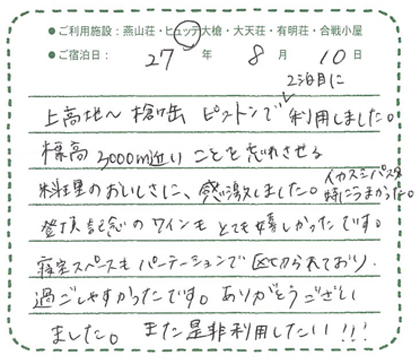 ●ご利用施設：燕山荘・ヒュッテ大槍・大天荘・有明荘・合戦小屋
●ご宿泊日： 27 年 8 月 10 日
2泊目に
上高地〜槍ヶ岳 ピストンで 利用しました。
標高 3000m近い ことを忘れさせる
料理のおいしさに、感激しました。 イカスミパスタ
特にうまかった。
登頂記念のワインも とても嬉しかったです。
寝室スペースも パーテーションで 区切られており、
過ごしやすかったです。ありがとうござい
ました。 また是非利用したい!!!